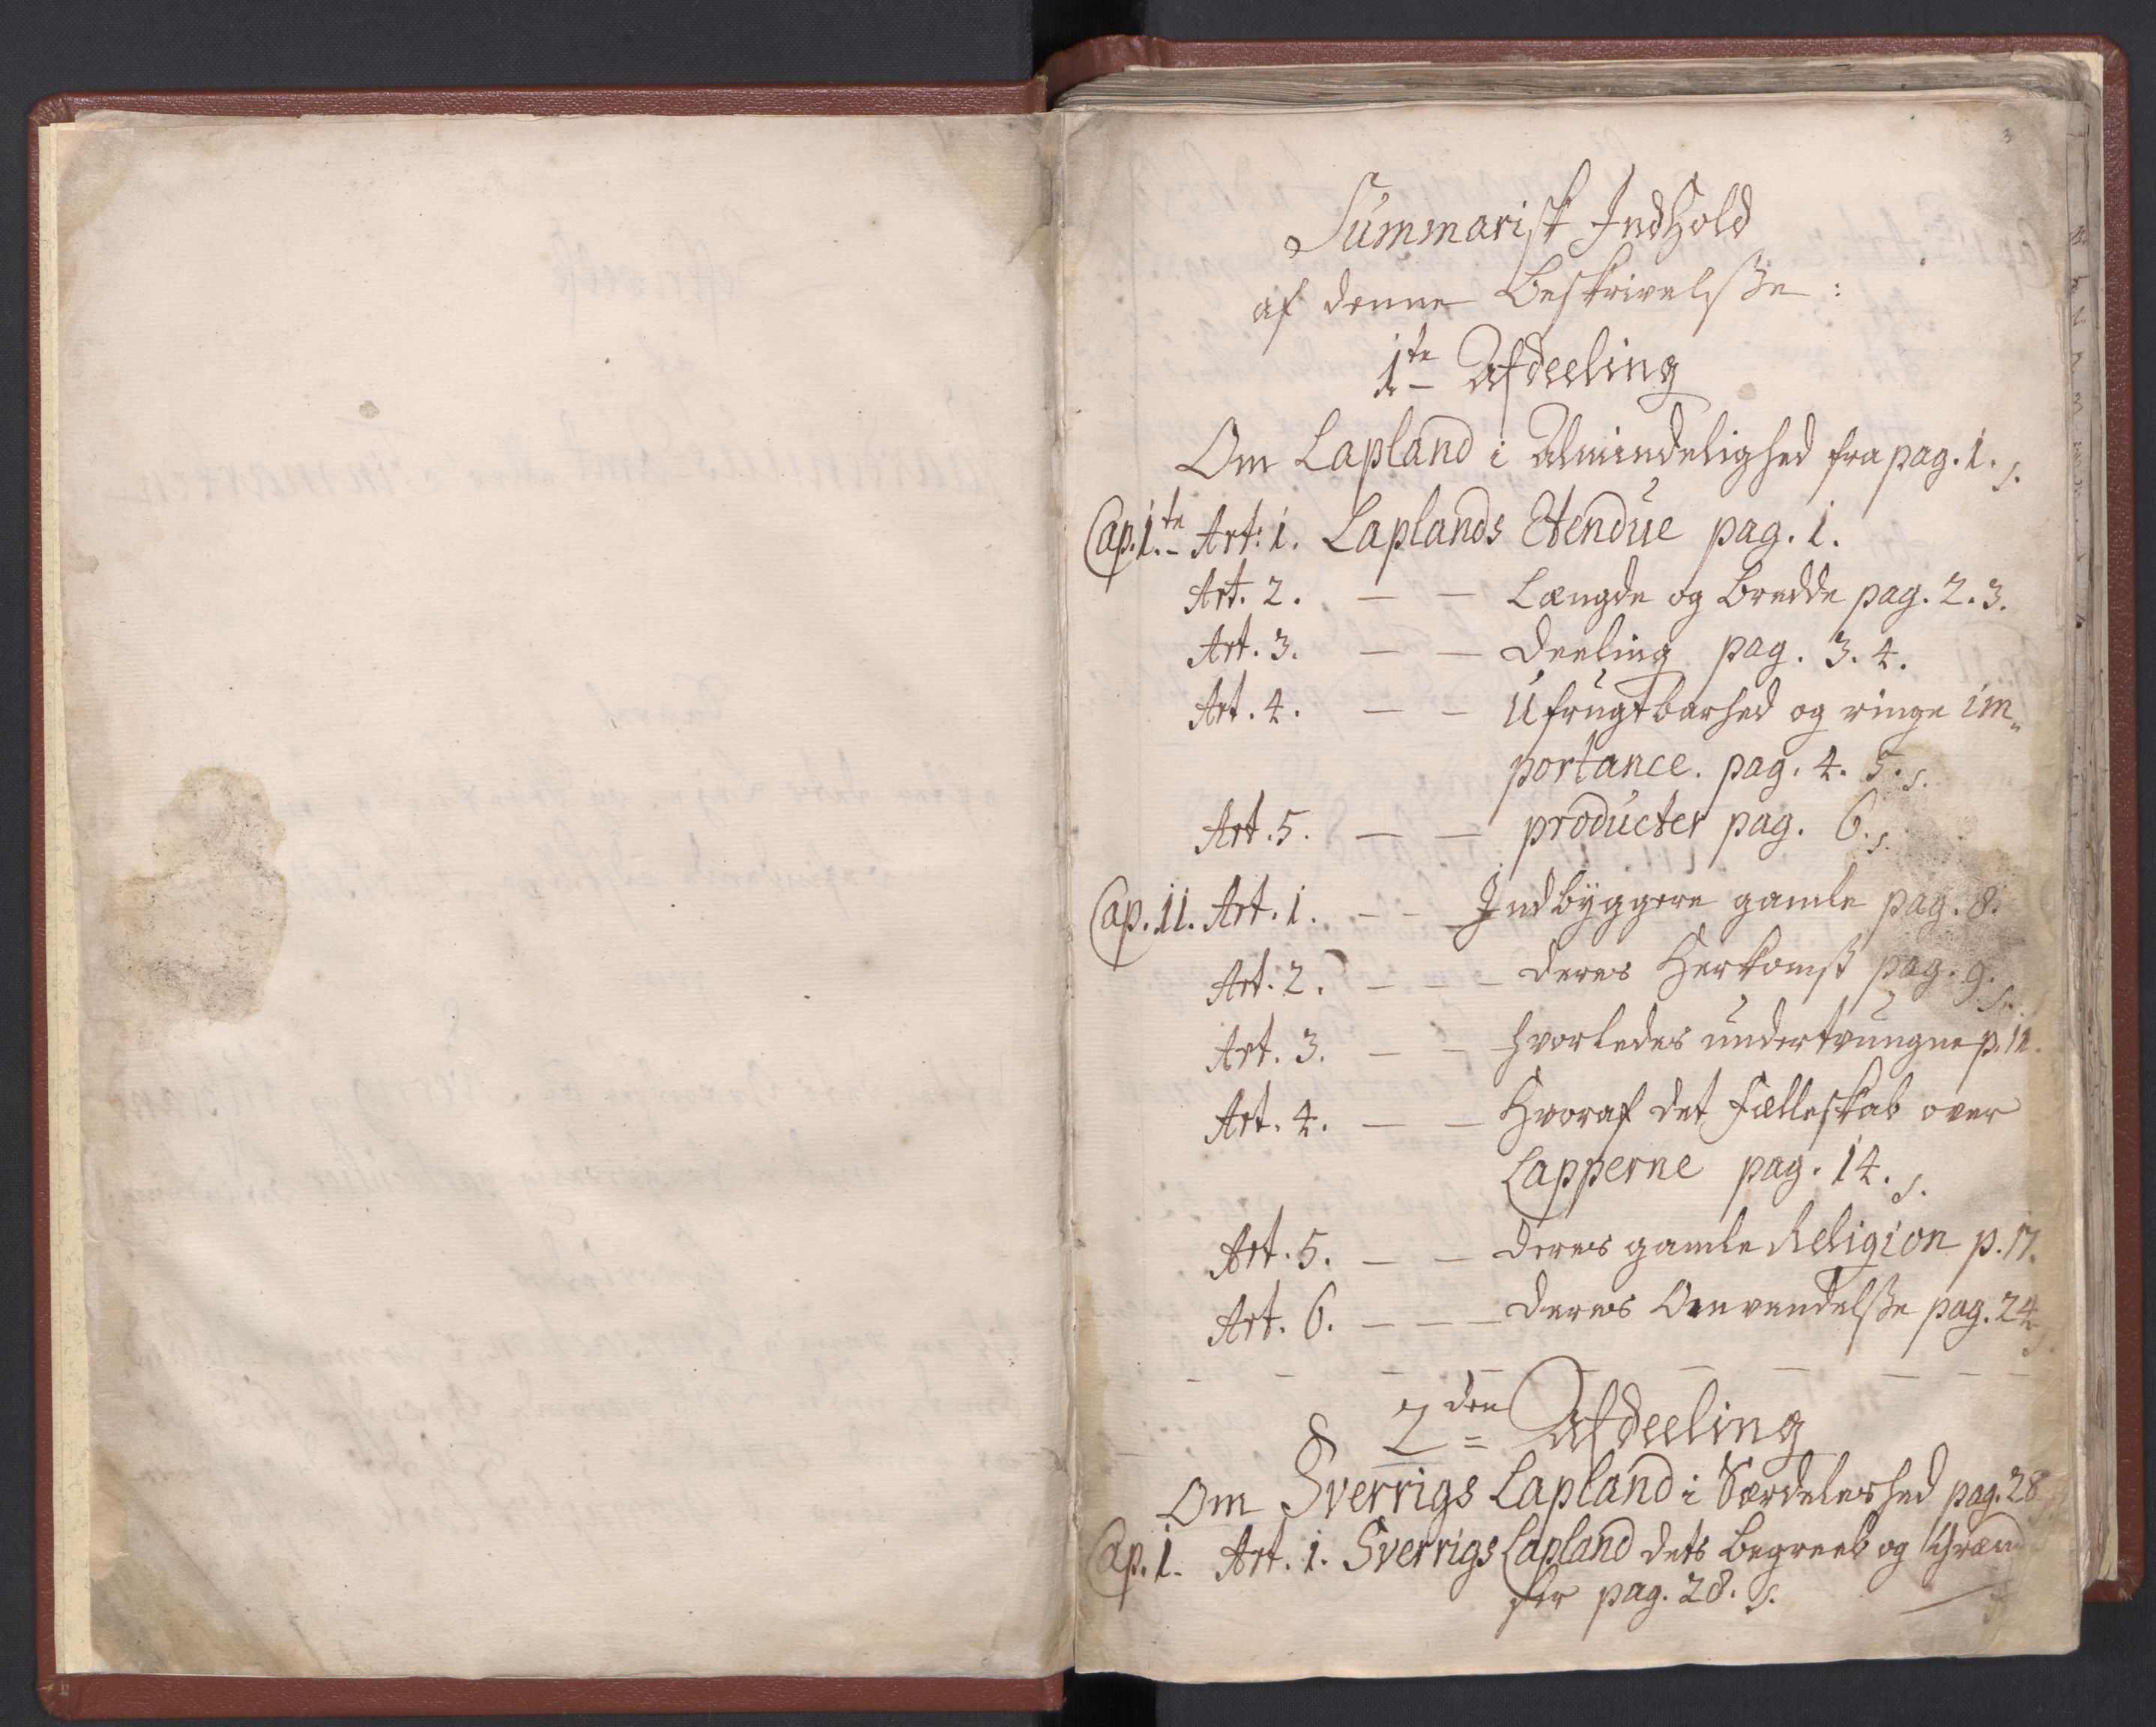 3
Summarisk Indhold
af denne Beskrivelsse:
1te Afdeeling
Om Lapland i Almindelighed fra pag. 1. s.
Cap. 1.te Art: 1. Laplands Etendue pag. 1.
Art. 2. — — Længde og Bredde pag. 2. 3.
Art. 3. — — Deeling pag. 3. 4.
Art. 4. — — Ufrugtbarhed og ringe im„
portance. pag. 4. 5. s.
Art. 5. — — producter pag. 6. s.
Cap. 11. Art. 1. — — Indbyggere gamle pag. 8.
Art. 2. — — — deres Herkomst pag. 9. s.
Art. 3. — — hvorledes undertvungne p. 12.
Art. 4. — — Hvoraf det Fælleskab over
Lapperne pag. 14. s.
Art. 5. — — deres gamle Religion p. 17.
Art. 6. — — — deres Omvendelsse pag. 24 s.
2den Afdeeling
Om Sverrigs Lapland i Særdeleshed pag. 28
Cap. 1. Art. 1. Sverrigs Lapland dets begreeb og Grænd
ser pag. 28. s.